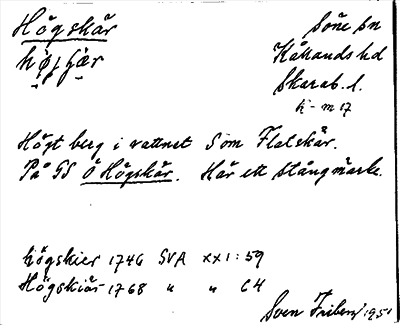 Högskär Söne sn
hø̣ʃʃæ̣r Kållands hd
Skarab. l.
k-m 17
Högt berg i vattnet som Flatskär.
På GS Ö Högskär. Här ett stångmärke.
högskier 1746 SVA XXI:59
Högskiär 1768 " " 64
Sven Friberg 1951